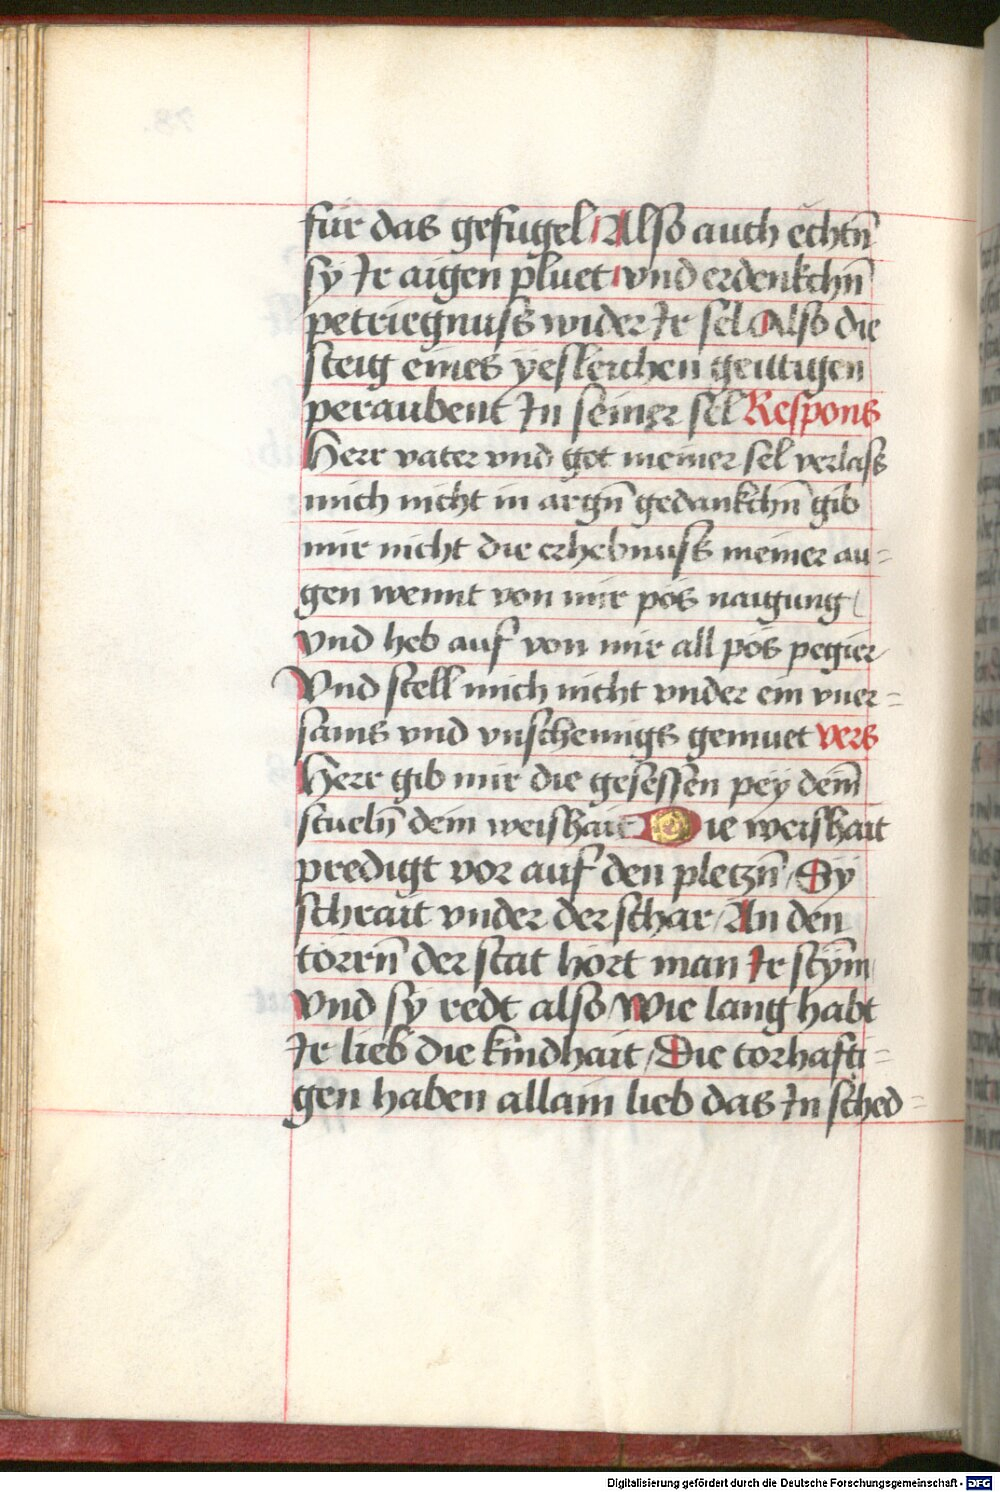 für das gefügel / Also auch echtn̄
sy Ir aigen pluet / vnd erdenkchn̄
petriegnuss wider Ir sel Also die
steig eines yeslerchen geittigen
peraubent In seiner sel Respons
Herr vater vnd got meiner sel verlass
mich nicht in argn̄ gedankchn̄ gib
mir nicht die erhebnuss meiner au=
gen wennt von mir pös naigung /
vnd heb auf von mir all pös pegier
Vnd stell mich nicht vnder ein vner=
sams vnd vnschemigs gemuet vers
Herr gib mir die gesessen pey deim̄
stueln̄ dem weishait Die weishait
predigt vor auf den pletzn̄ / Sy
schrait vnder der schar / An den
törrn̄ der stat hört man Ir stym̄
vnd sy redt also / Wie lang habt
Ir lieb die kindhait / Die torhafti=
gen haben allain lieb das In sched=
Digitalisierung gefördert durch die Deutsche Forschungsgemeinschaft - DFG